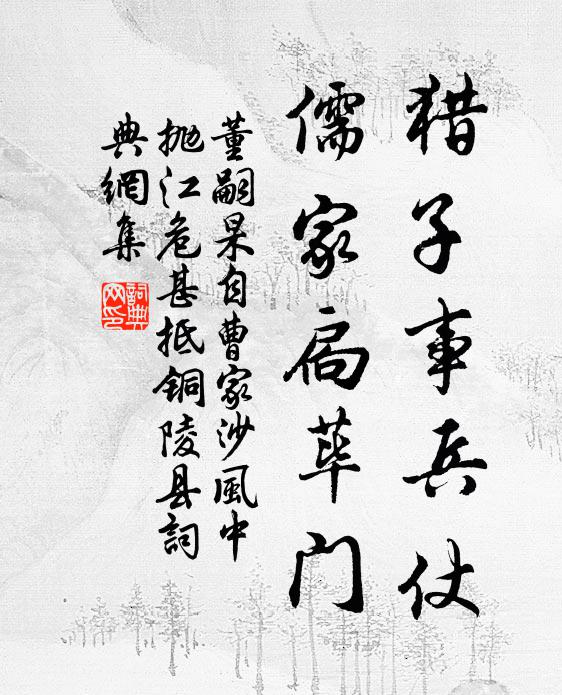 猎子事兵仗
儒家扃荜门
董嗣杲自曹家沙風中
抛江危甚抵铜陵县詞
典網集
詞典网印